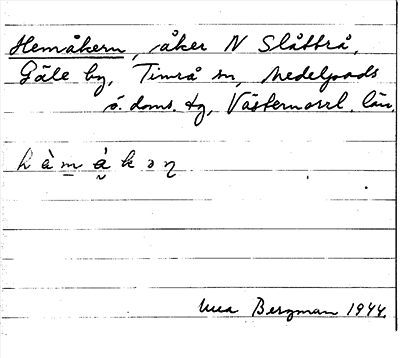 Hemåkern, åker N Slåttrå,
Gäle by, Timrå sn, Medelpads
ö. doms. tg, Västernorrl. län.
h à m å̀ k ə ŋ
Bergman 1944.